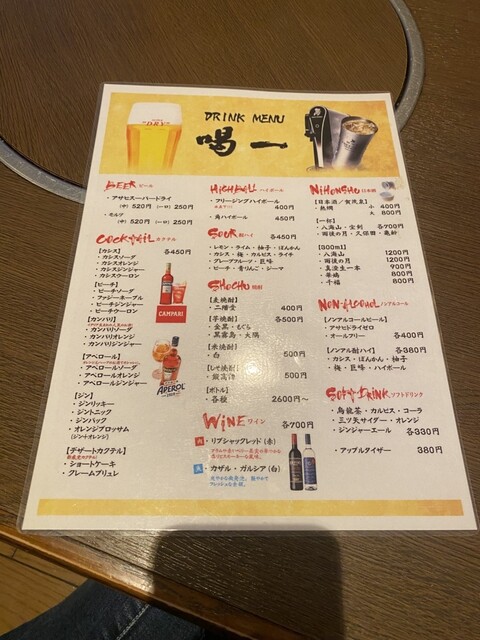 DRINK MENU
喝一
BEER ビール
・アサヒスーパードライ
(中) 520円 (一口) 250円
・モルツ
(中) 520円 (一口) 250円
COCKTAIL カクテル
各450円
【カシス】
・カシスソーダ
・カシスオレンジ
・カシスジンジャー
・カシスウーロン
【ピーチ】
・ピーチソーダ
・ファジーネーブル
・ピーチジンジャー
・ピーチウーロン
【カンパリ】
・カンパリソーダ
・カンパリオレンジ
・カンパリジンジャー
CAMPARI
【アペロール】
・アペロールソーダ
・アペロールオレンジ
・アペロールジンジャー
APEROL
【ジン】
・ジンリッキー
・ジントニック
・ジンバック
・オレンジブロッサム
(ジン+オレンジ)
【デザートカクテル】
・ショートケーキ
・クレームブリュレ
HIGHBALL ハイボール
・フリージングハイボール
400円
・角ハイボール 450円
SOUR 酎ハイ
各450円
・レモン・ライム・柚子・ぽんかん
・カシス・梅・カルピス・ライチ
・グレープフルーツ・巨峰
・ピーチ・青りんご・ジーマ
SHOCHU 焼酎
【麦焼酎】
・二階堂 400円
【芋焼酎】 各500円
・金黒・もぐら
・黒霧島・大隅
【米焼酎】
・白 500円
【しそ焼酎】
500円
【ボトル】
・各種 2600円~
WINE ワイン
各700円
赤 ・リブシャックレッド (赤)
・カザル・ガルシア (白)
NIHONSHU 日本酒
【日本酒/賀茂泉】
・熱燗 小 400円
大 800円
【一合】
・八海山・宝剣 各700円
・雨後の月・久保田・亀齢
【300ml】
・八海山 1200円
・雨後の月 1200円
・真澄生一本 900円
・華鳩 700円
・千福 800円
NON-ALCOHOL ノンアルコール
【ノンアルコールビール】
・アサヒドライゼロ
・オールフリー 各400円
【ノンアル酎ハイ】 各380円
・カシス・ぽんかん・柚子
・梅・巨峰・ハイボール
SOFT DRINK ソフトドリンク
・烏龍茶・カルピス・コーラ
・三ツ矢サイダー・オレンジ
・ジンジャーエール 各330円
・アップルタイザー 380円